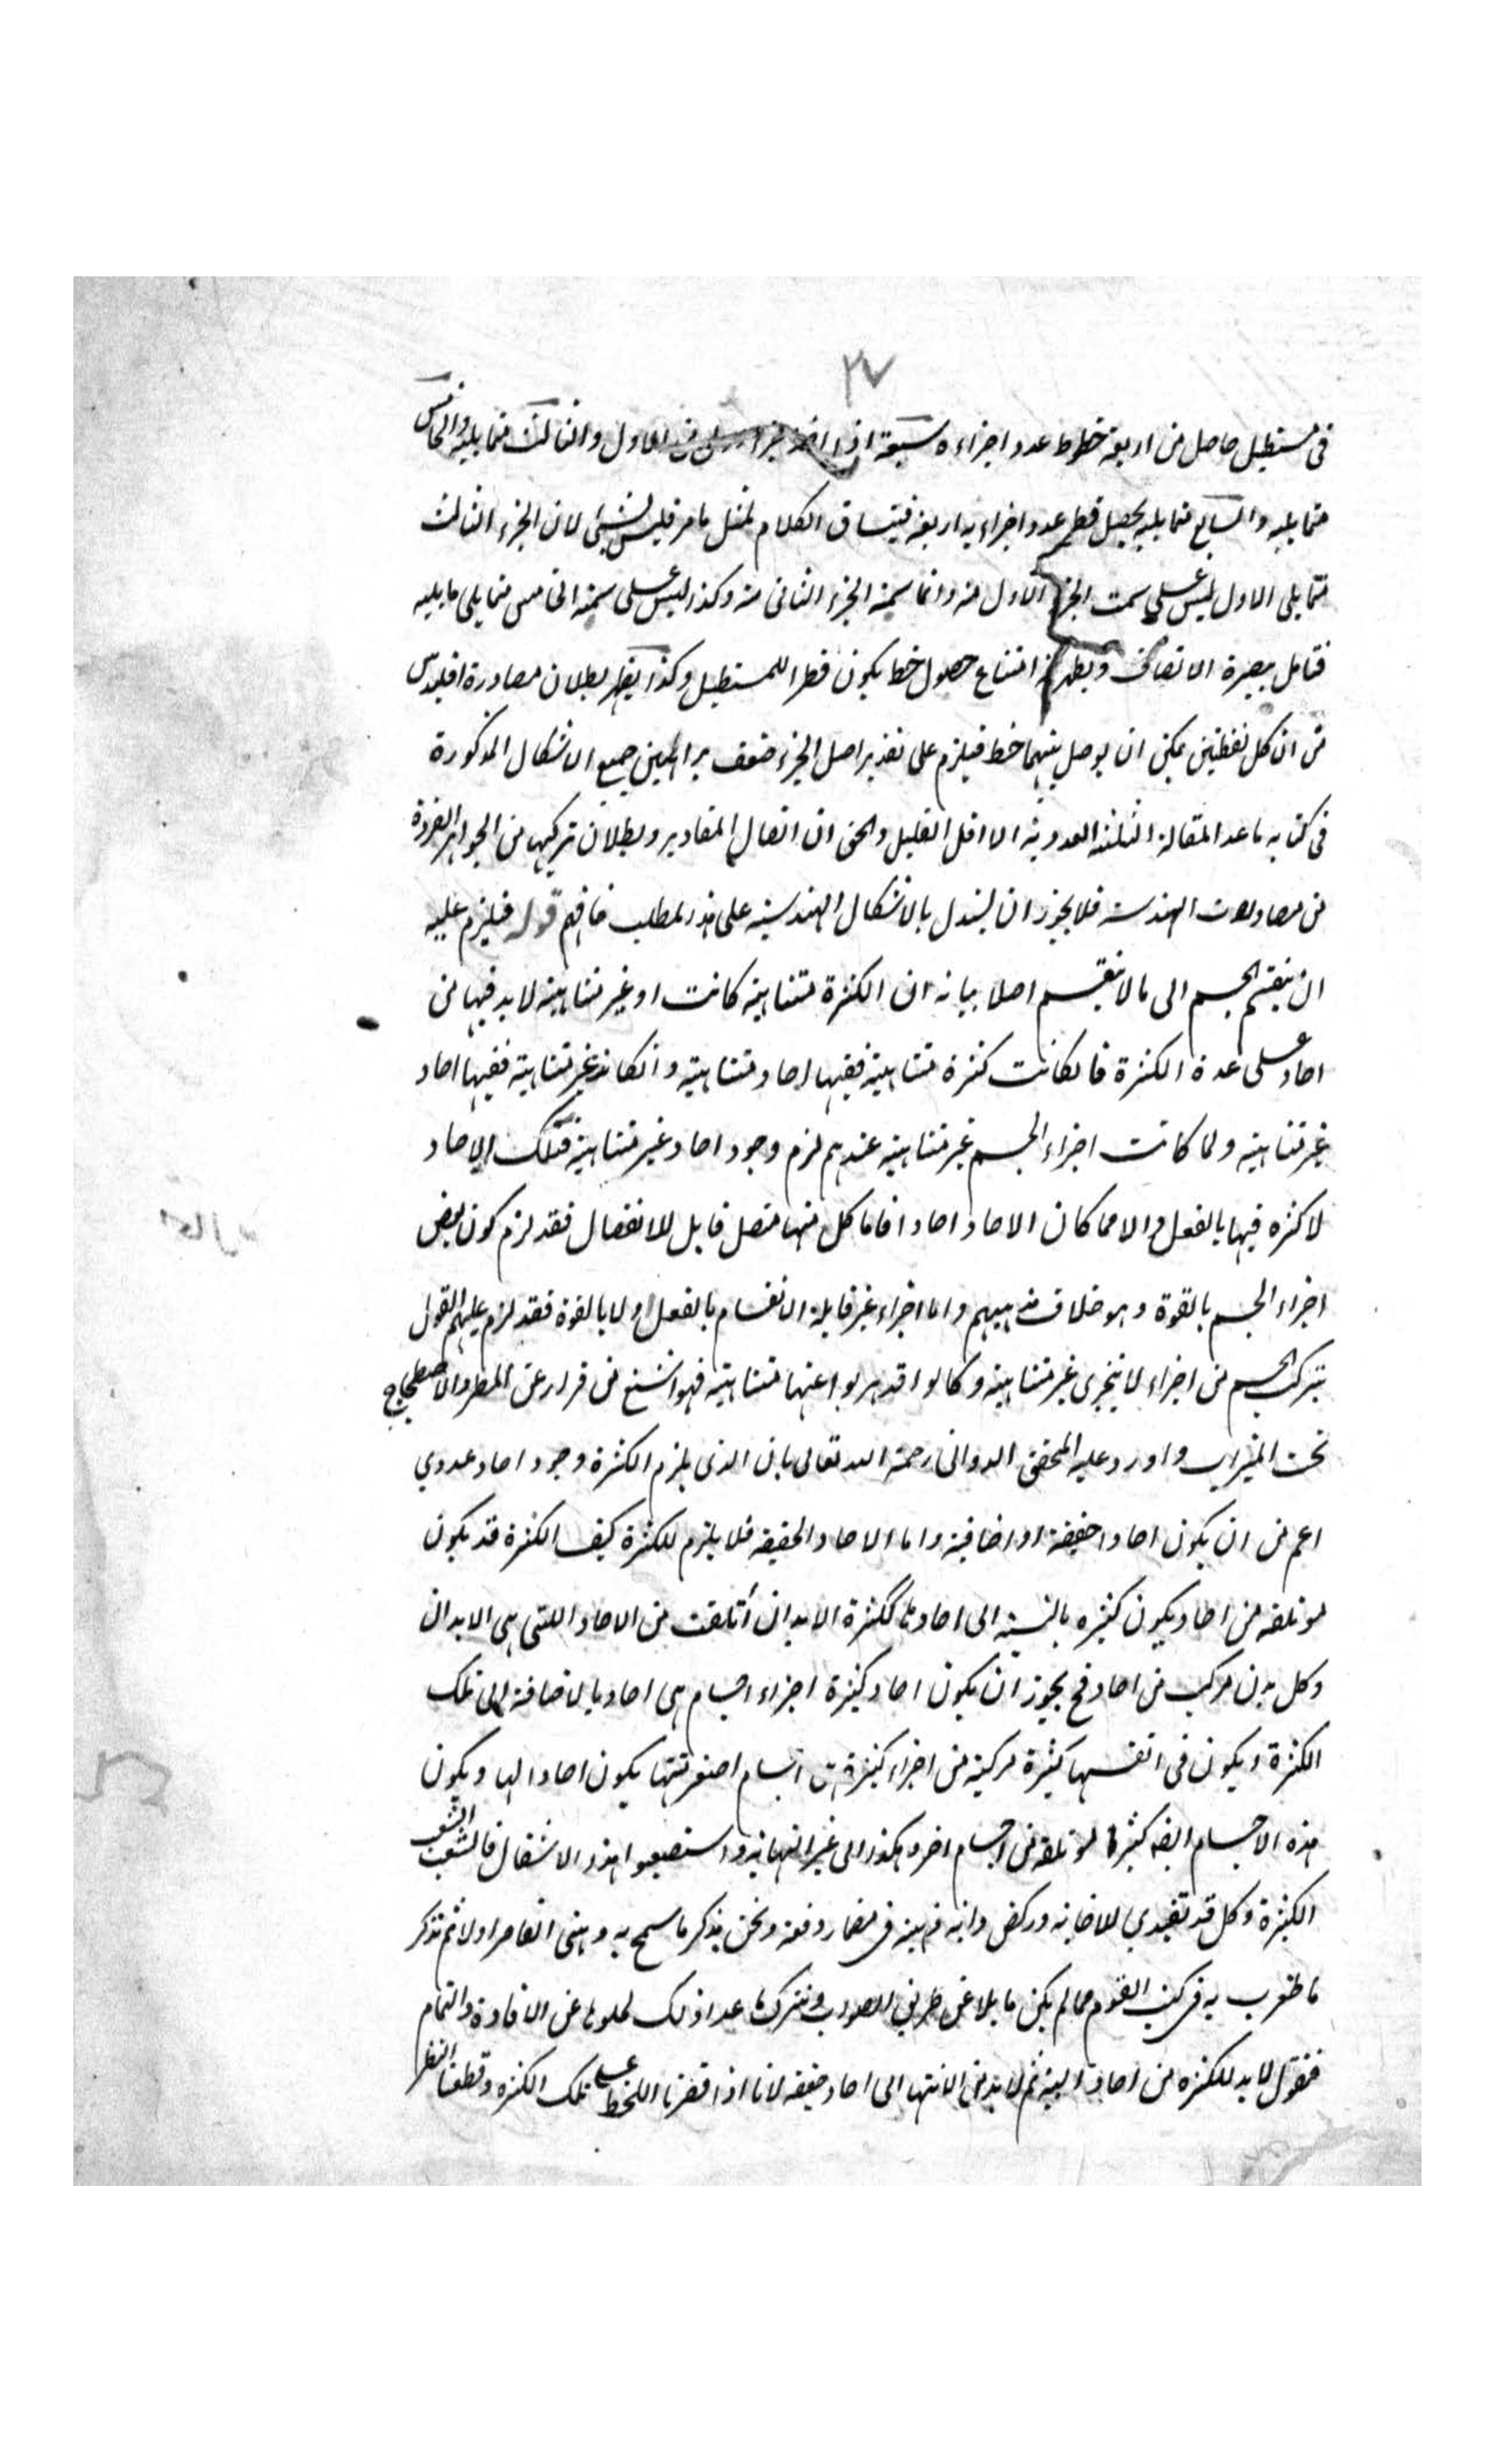 ٣٧
فى مستطيل حاصل من اربعة خطوط عدد اجزاءه سبعة اذا اخذ الاول والثالث مما يليه والخامس
مما يليه والسابع مما يليه يحصل قطر عدد اجزاءه اربعة فينساق الكلام بمثل ما مر فليس بشئ لان الجزء الثالث
مما يلى الاول ليس على سمت الجزء الاول منه وانما سمته الجزء الثانى منه وكذا ليس على سمته الخامس مما يلى ما يليه
فتامل ببصيرة الانصاف ويظهر منه امتناع حصول خط يكون قطرا للمستطيل وكذا يظهر بطلان مصادرة اقليدس
من ان كل نقطتين يمكن ان يوصل بينهما خط فيلزم على تقدير اصل الجزء ضعف براهين جميع الاشكال المذكورة
فى كتابه ما عد المقالة الثلثة العددية الا اقل القليل والحق ان اتصال المقادير وبطلان تركبها من الجواهر الفردة
من مصادرات الهندسة فلا يجوز ان يستدل بالاشكال الهندسية على هذا المطلب فافهم قوله فيلزم عليه
ان ينقسم الجسم الى ما لا ينقسم اصلا بيانه ان الكثرة متناهية كانت او غير متناهية لا بد فيها من
احاد على عدة الكثرة فان كانت كثرة متناهية ففيها احاد متناهية وانكانت غير متناهية ففيها احاد
غير متناهية ولما كانت اجزاء الجسم غير متناهية عندهم لزم وجود احاد غير متناهية فتلك الاحاد
لا كثره فيها بالفعل والا مما كان الاحاد احادا فاما كل منها متصل قابل للانفصال فقد لزم كون بعض
اجزاء الجسم بالقوة وهو خلاف مذهبهم واما اجزاء غير قابلة الانقسام بالفعل ولا بالقوة فقد لزم عليهم القول
بتركب الجسم من اجزاء لا يتجزى غير متناهية وكانوا قد هربوا عنها متناهية فهو اشنع من فرار عن المطر والاضطجاع
تحت الميزاب واورد عليه المحقق الدوانى رحمة الله تعالى بان الذى يلزم الكثرة وجود احاد عددي
اعم من ان يكون احادا حقيقة او اضافية واما الاحاد الحقيقة فلا يلزم للكثرة كيف الكثرة قد يكون
مؤتلفه من احاد يكون كثيره بالنسبة الى احادها ككثرة الابدان أتلفت من الاحاد اللتى هى الابدان
وكل بدن مركب من احاد فح يجوز ان يكون احاد كثيرة اجزاء اجسام هى احاد بالاضافة الى تلك
الكثرة ويكون فى انفسها كثيرة مركبة من اجزاء كثيرة اجسام اصغر منها يكون احادا لها ويكون
هذه الاجسام ايضه كثيرة مؤتلفة من اجسام اخر وهكذا الى غير النهاية واستصعبوا هذا الاشكال فانشعب الشعب
الكثيرة وكل قد تقيدي للاجابه وركض دابه ذهنه فى مضمار دفعه ونحن نذكر ما سمح به ذهنى القاصر اولا ثم نذكر
ما ظفرت به فى كتب القوم مما لم يكن مايلا عن طريق الصواب ونترك ما عدا ذلك لخلوها عن الافادة والتمام
فنقول لا بد للكثره من احاد البتة ثم لا بد من الانتها الى احاد حقيقة لانا اذا اقصرنا اللحظ على تلك الكثره وقطعنا النظر